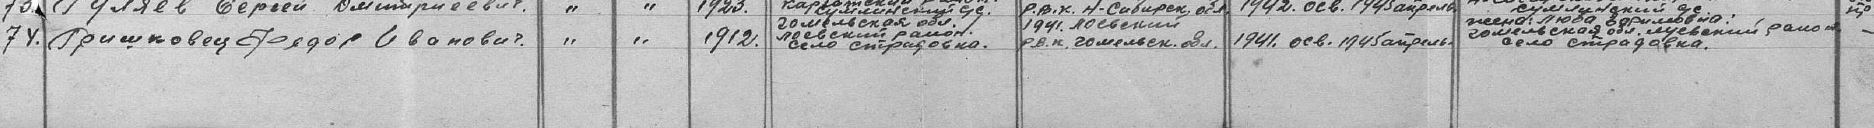 73. Гуляев Сергей Дмитриевич. " " 1923. Каргатский район. Р.В.К. Н-Сибирск. обл. 1942. осв. 1945 апрель.
Сумлинский с/с. Сумлинский с/с.
74. Гришковец Федор Иванович. " " 1912. Гомельская обл. Лоевский район. село Страдовка. 1941. Лоевский Р.В.К. Гомельск. обл. 1941. осв. 1945 апрель. жена: Люба Ефимовна: Гомельская обл. Луевский район. село Страдовка. —